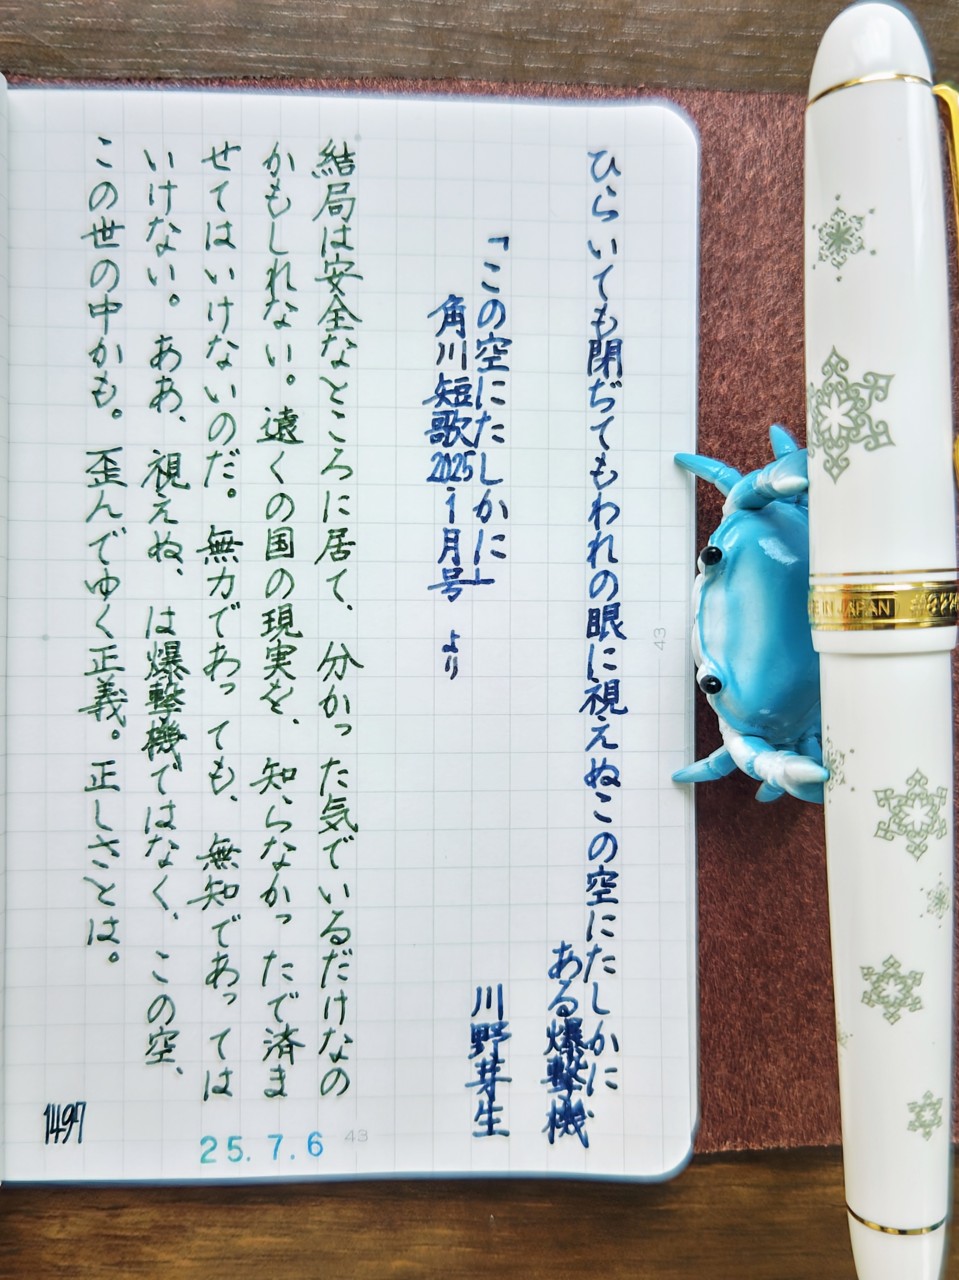 ひらいても閉ぢてもわれの眼に視えぬこの空にたしかに
ある爆撃機
川野芽生
「この空にたしかに」
角川短歌2025.1月号 より
結局は安全なところに居て、分かった気でいるだけなの
かもしれない。遠くの国の現実を、知らなかったで済ま
せてはいけないのだ。無力であっても、無知であっては
いけない。ああ、視えぬ、は爆撃機ではなく、この空、
この世の中かも。歪んでゆく正義。正しさとは。
1497
25.7.6
43
43
IN JAPAN